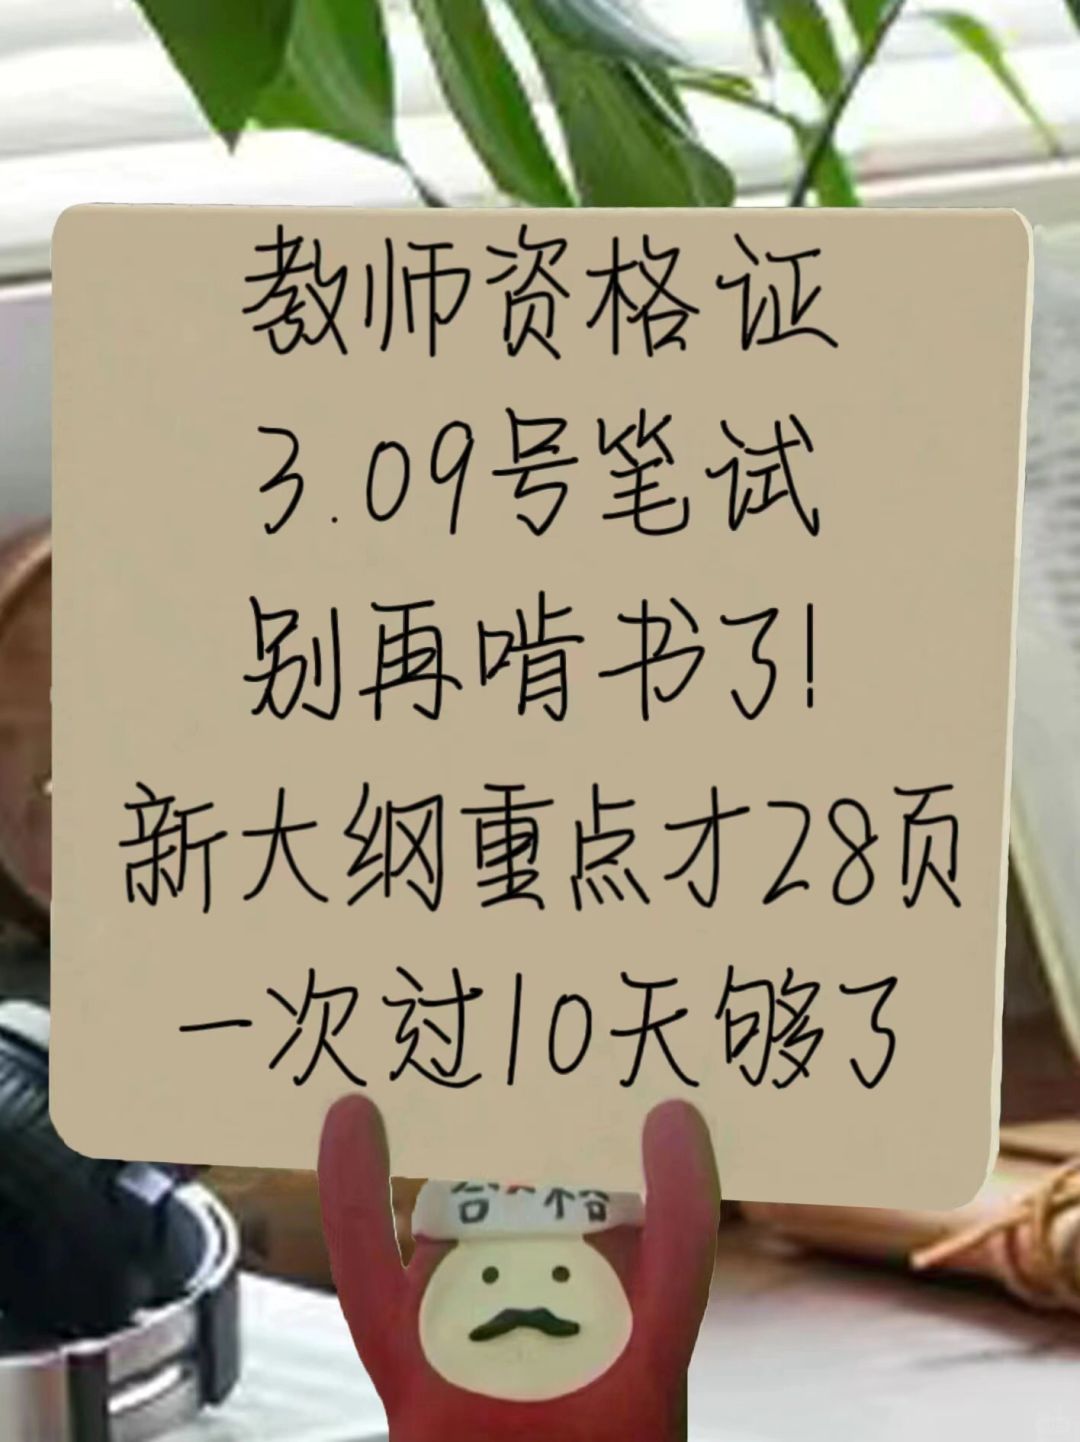 教师资格证
3.09号笔试
别再啃书了!
新大纲重点才28页
一次过10天够了
合格